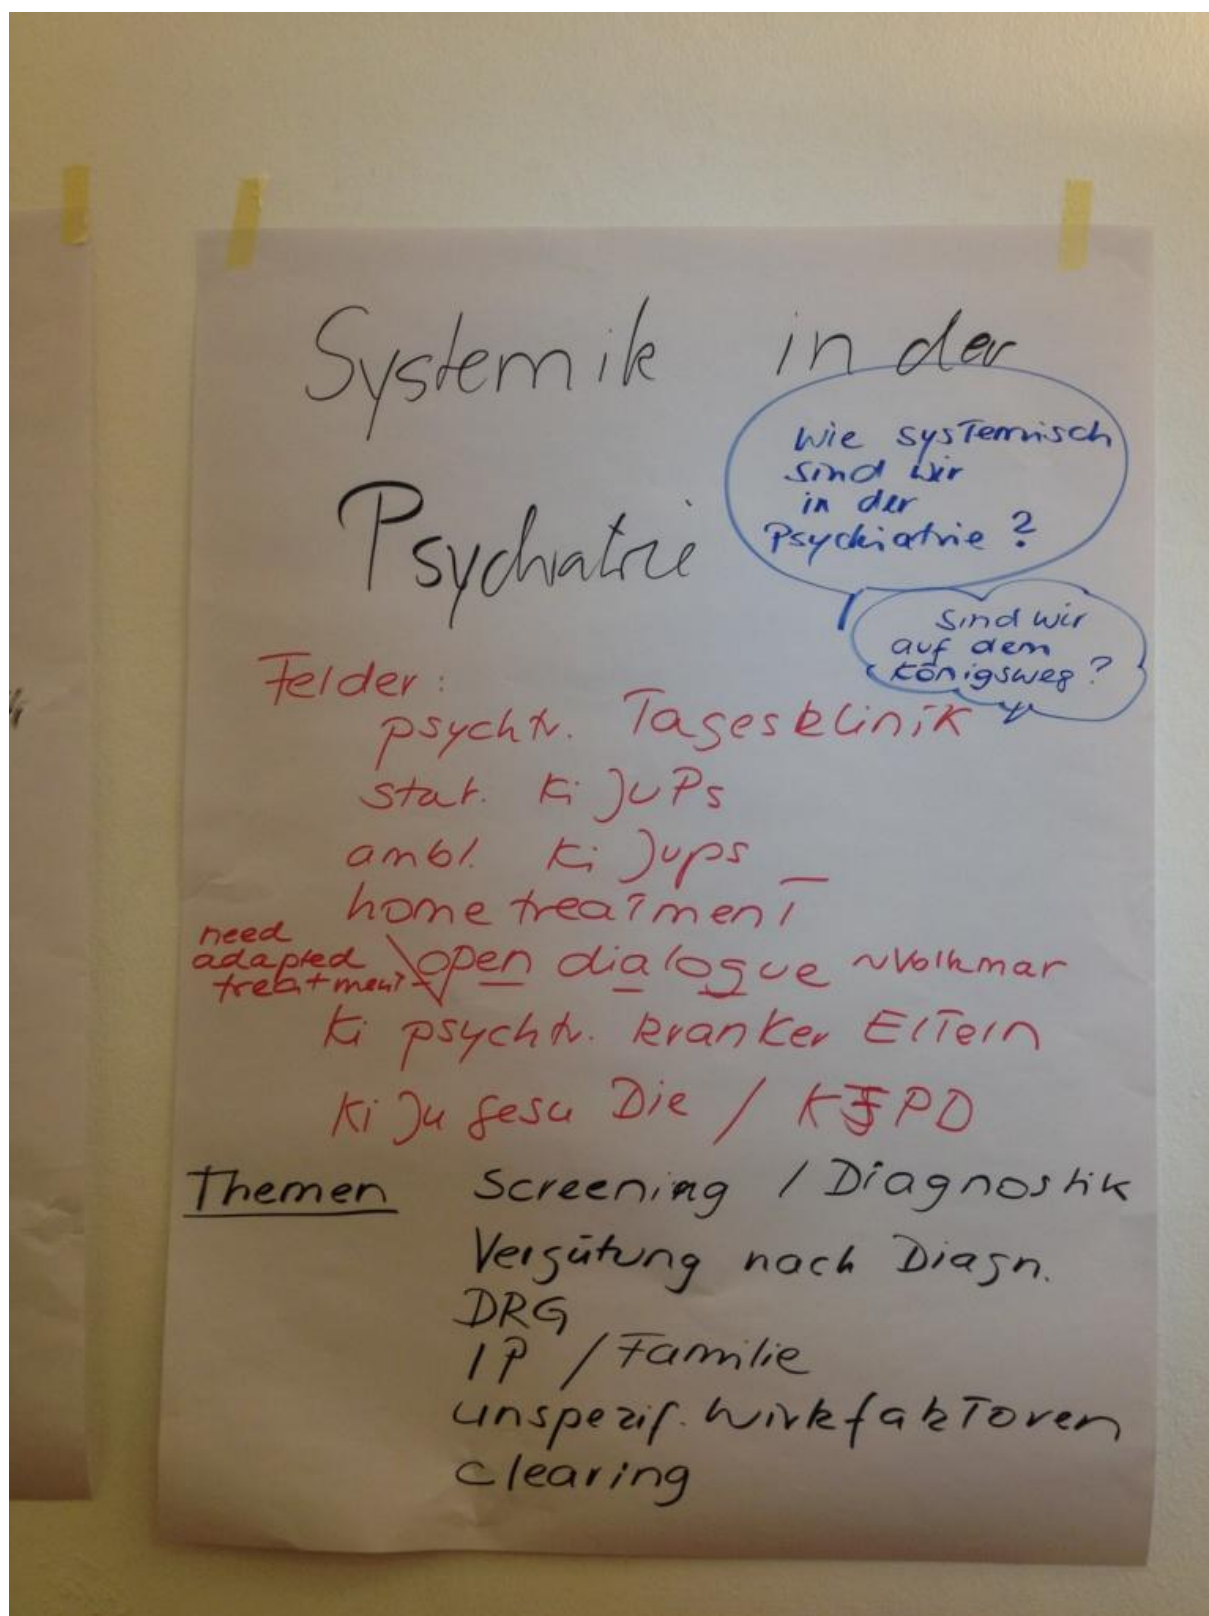 Systemik in der
Psychiatrie
Wie systemisch
sind wir
in der
Psychiatrie?
Sind wir
auf dem
Königsweg?
Felder:
psychtr. Tagesklinik
stat. Ki JuPs
ambl. Ki Jups
home treatment
need
adapted
treatment
open dialogue ~Volkmar
Ki psychtr. kranker Eltern
Ki Ju Gesu Die / KJPD
Themen Screening / Diagnostik
Vergütung nach Diagn.
DRG
IP / Familie
unspezif. Wirkfaktoren
Clearing